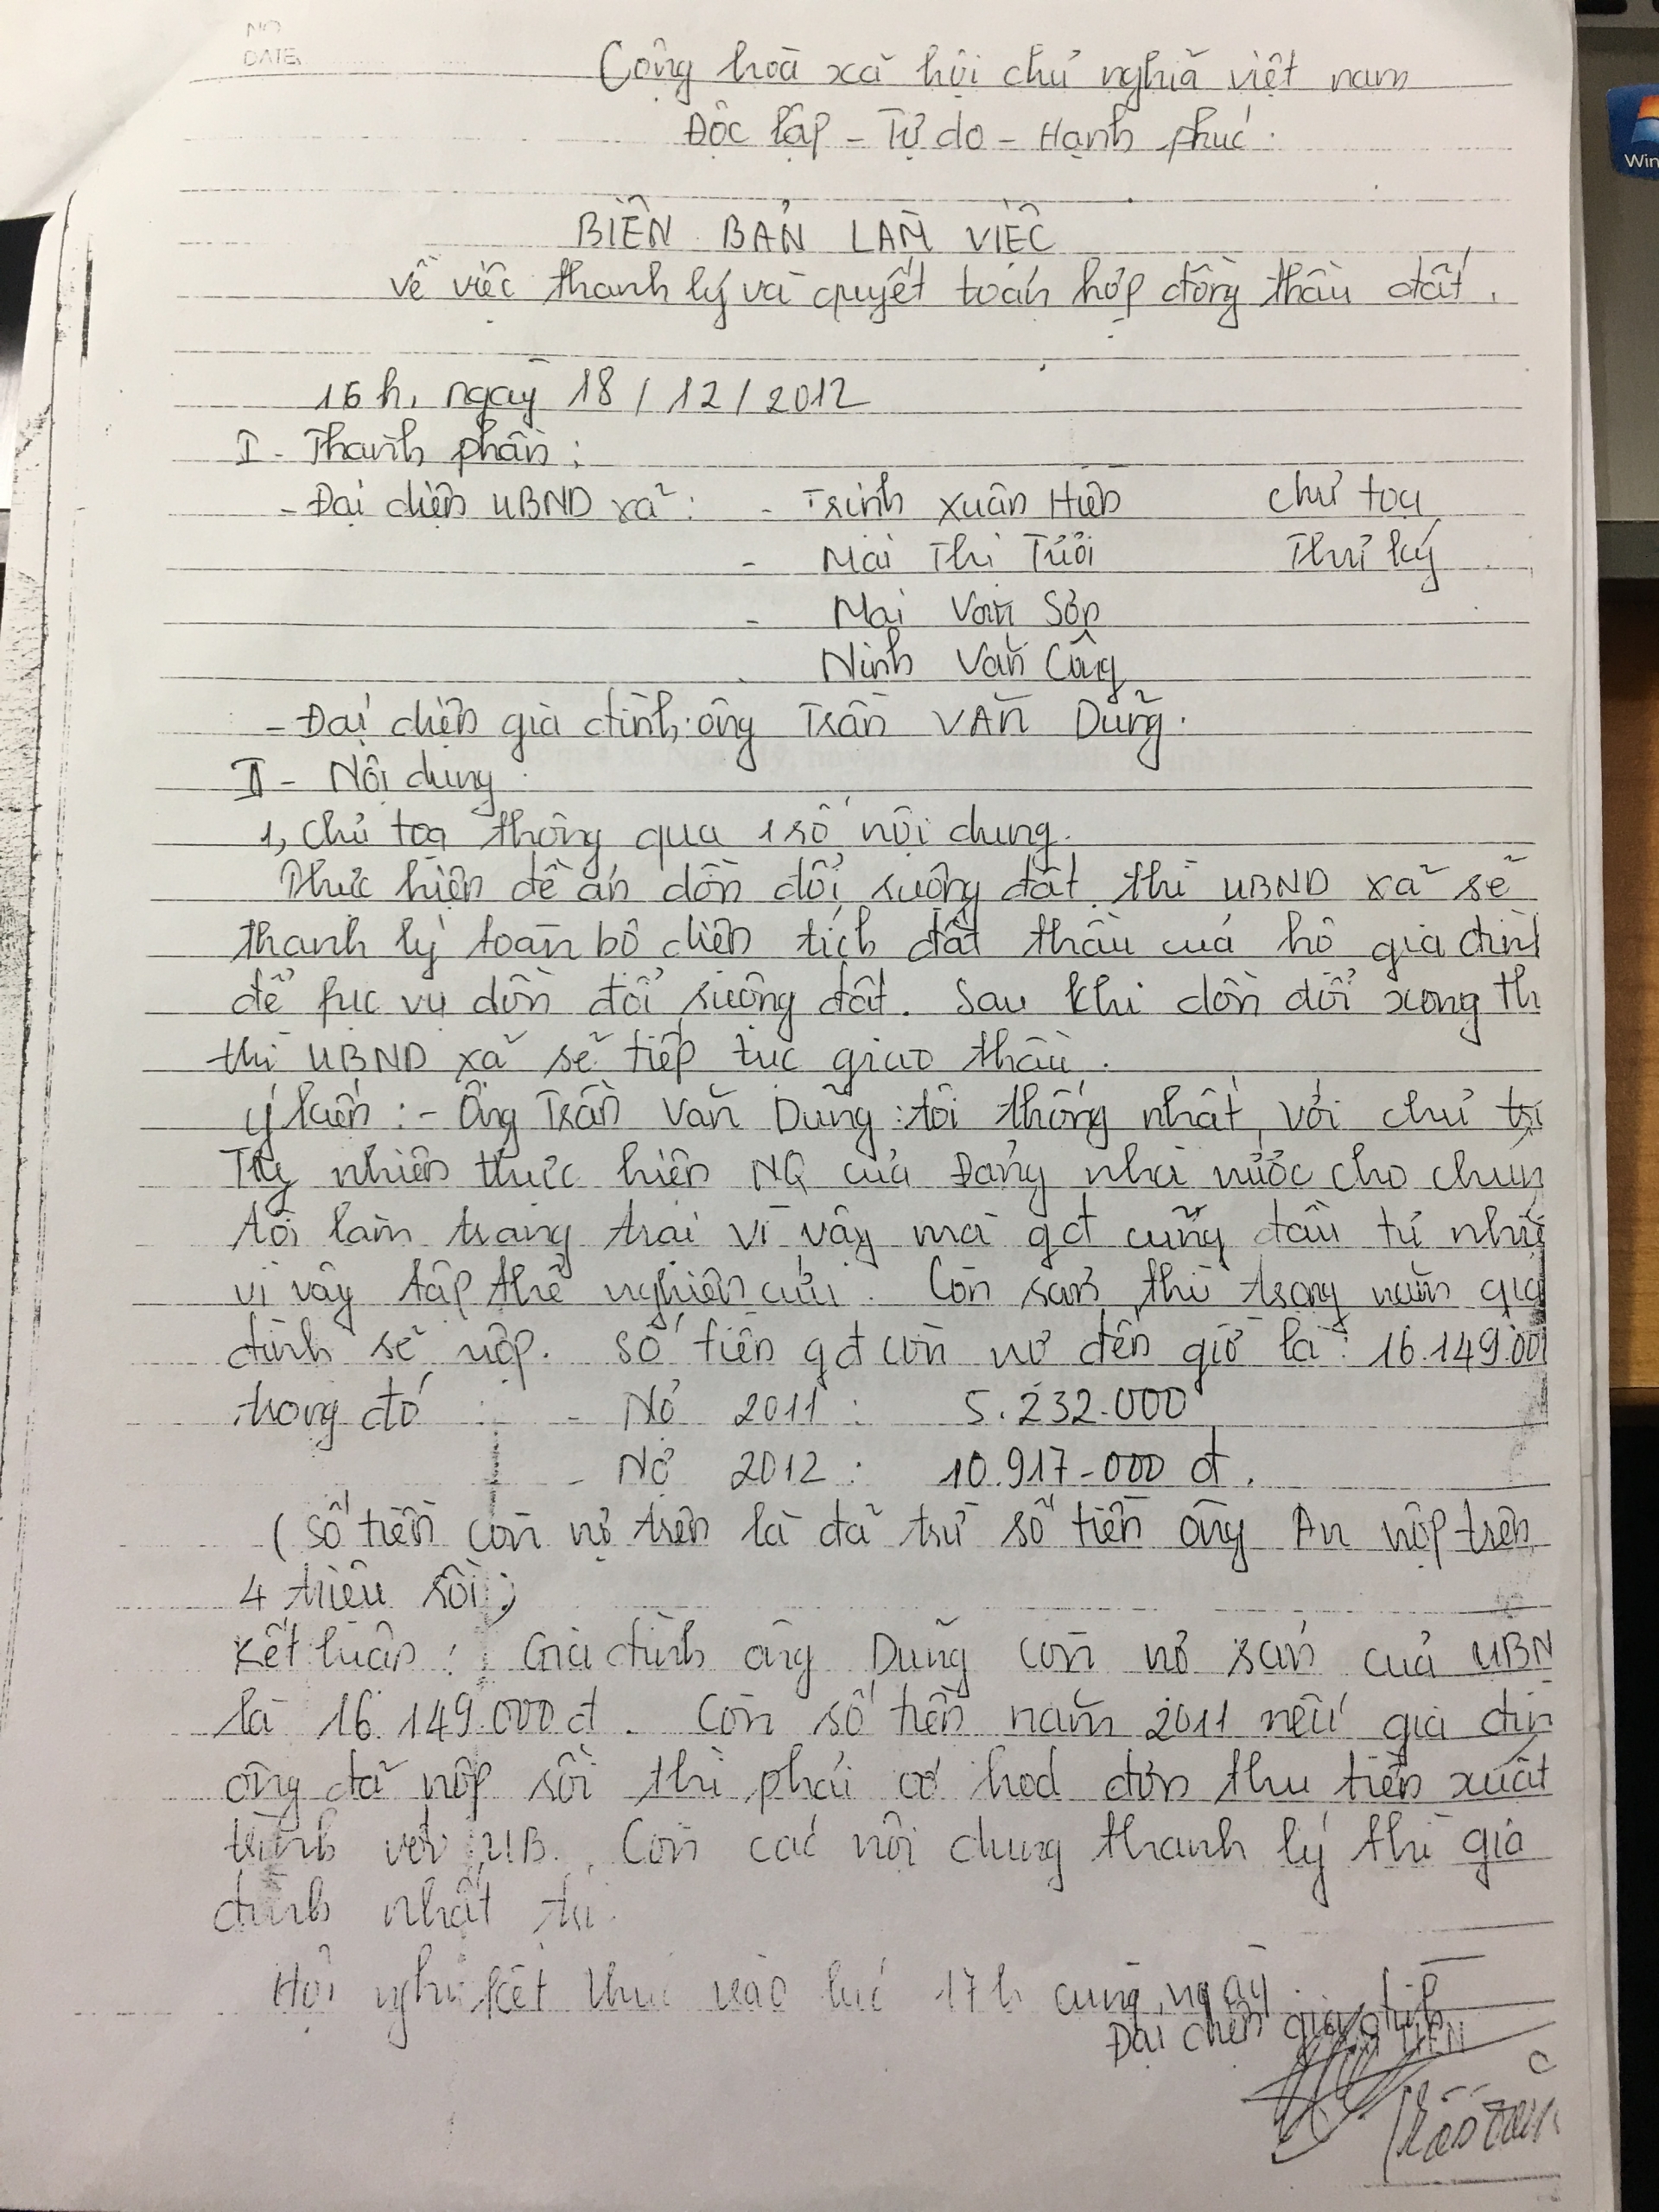 NO
DATE
Cộng hoà xã hội chủ nghĩa việt nam
Độc lập - Tự do - Hạnh phúc.
BIÊN BẢN LÀM VIỆC
về việc thanh lý và quyết toán hợp đồng thầu đất.
16h, ngày 18/12/2012
I - Thành phần:
- Đại diện UBND xã: - Trịnh Xuân Hiên chủ toạ
- Mai Thị Tươi Thư ký
- Mai Văn Sớp
Ninh Văn Công
- Đại diện gia đình: ông Trần VĂN Dũng.
II - Nội dung
1, Chủ toạ thông qua 1 số nội dung.
Thực hiện đề án dồn đổi ruộng đất, thì UBND xã sẽ
thanh lý toàn bộ diện tích đất thầu của hộ gia đình
để fục vụ dồn đổi ruộng đất. Sau khi dồn đổi xong th
thì UBND xã sẽ tiếp tục giao thầu.
Ý kiến: - Ông Trần Văn Dũng: tôi thống nhất với chủ trì
Tuy nhiên thực hiện NQ của Đảng nhà nước cho chún
tôi làm trang trại vì vậy mà gđ cũng đầu tư nhiề
vì vậy tập thể nghiên cứu. Còn sản thì trong năm gia
đình sẽ nộp. Số tiền gđ còn nợ đến giờ là: 16.149.00
trong đó: - Nợ 2011: 5.232.000
- Nợ 2012: 10.917.000 đ.
(Số tiền còn nợ trên là đã trừ số tiền ông An nộp trên
4 triệu rồi)
Kết luận: Gia đình ông Dũng còn nợ sản của UBN
là 16.149.000đ. Còn số tiền năm 2011 nếu gia đìn
ông đã nộp rồi thì phải có hoá đơn thu tiền xuất
trình với UB. Còn các nội dung thanh lý thì gia
đình nhất trí.
Hội nghị kết thúc vào lúc 17h cùng ngày.
Đại diện gia đình